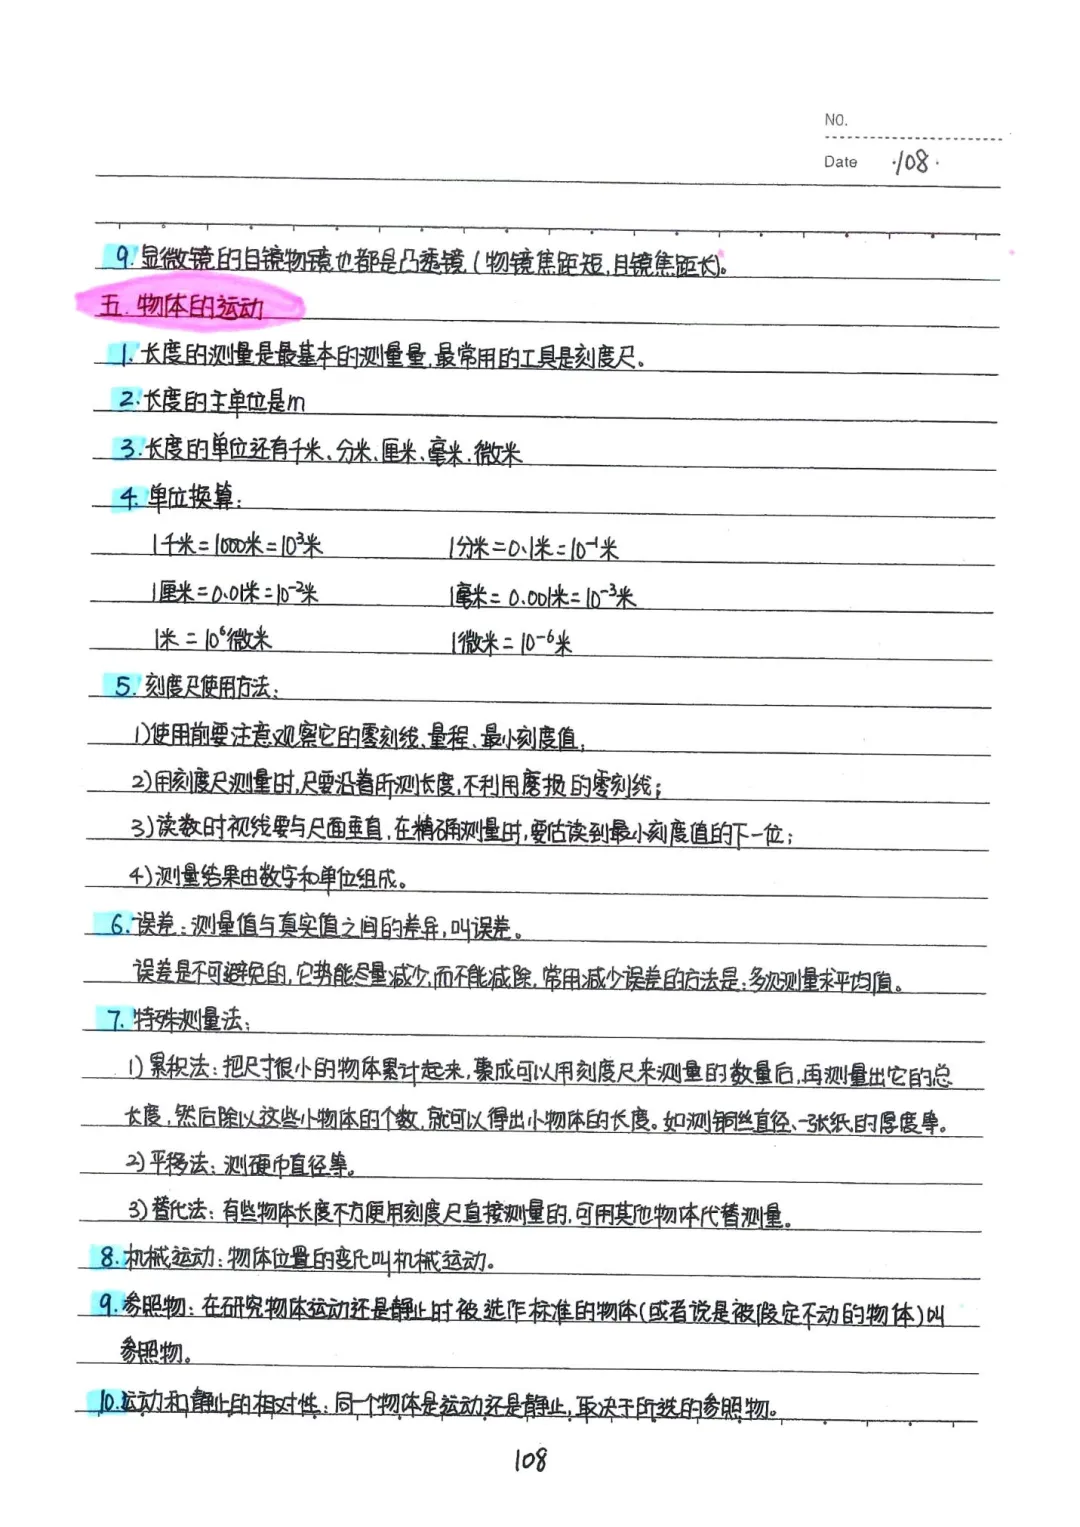 NO.
Date ·108·
9.显微镜的目镜物镜也都是凸透镜(物镜焦距短,目镜焦距长)。
五.物体的运动
1.长度的测量是最基本的测量量,最常用的工具是刻度尺。
2.长度的主单位是m
3.长度的单位还有千米、分米、厘米、毫米.微米
4.单位换算:
1千米=1000米=10³米 1分米=0.1米=10⁻¹米
1厘米=0.01米=10⁻²米 1毫米=0.001米=10⁻³米
1米=10⁶微米 1微米=10⁻⁶米
5.刻度尺使用方法:
1)使用前要注意观察它的零刻线、量程、最小刻度值;
2)用刻度尺测量时,尺要沿着所测长度,不利用磨损的零刻线;
3)读数时视线要与尺面垂直,在精确测量时,要估读到最小刻度值的下一位;
4)测量结果由数字和单位组成。
6.误差:测量值与真实值之间的差异,叫误差。
误差是不可避免的,它势能尽量减少,而不能减除,常用减少误差的方法是:多次测量求平均值。
7.特殊测量法:
1)累积法:把尺寸很小的物体累计起来,聚成可以用刻度尺来测量的数量后,再测量出它的总
长度,然后除以这些小物体的个数,就可以得出小物体的长度。如测铜丝直径、一张纸的厚度等。
2)平移法:测硬币直径等。
3)替代法:有些物体长度不方便用刻度尺直接测量的,可用其他物体代替测量。
8.机械运动:物体位置的变化叫机械运动。
9.参照物:在研究物体运动还是静止时被选作标准的物体(或者说是被假定不动的物体)叫
参照物。
10.运动和静止的相对性:同一个物体是运动还是静止,取决于所选的参照物。
108